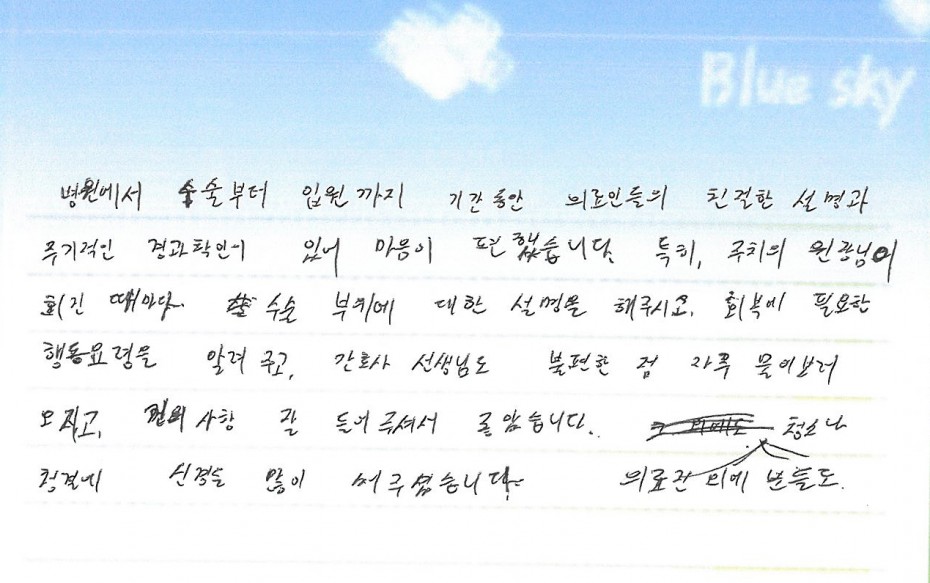 Blue sky
병원에서 수술부터 입원까지 기간동안 의료인들의 친절한 설명과
주기적인 경과확인이 있어 마음이 편했습니다. 특히, 주치의 원장님이
회진 때마다. 수술 부위에 대한 설명을 해주시고, 회복에 필요한
행동요령을 알려 주고, 간호사 선생님도 불편한 점 자주 물어보러
오시고, 편의 사항 잘 들어주셔서 좋았습니다. 청소나
청결에 신경을 많이 써주셨습니다. 의료관 외에 분들도.